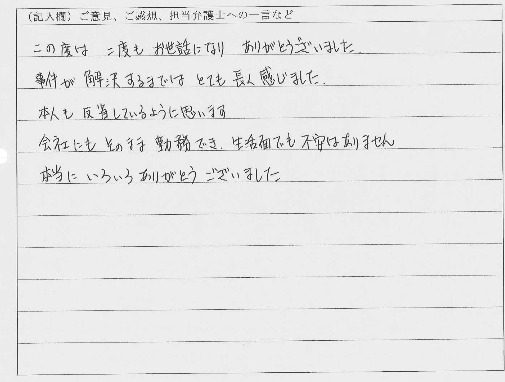 (記入欄) ご意見、ご感想、担当弁護士への一言など
この度は 二度も お世話になり ありがとうございました
事件が 解決するまでは とても長く感じました.
本人も 反省しているように思います
会社にも そのまま 勤務でき、生活面でも 不安はありません
本当に いろいろ ありがとう ございました